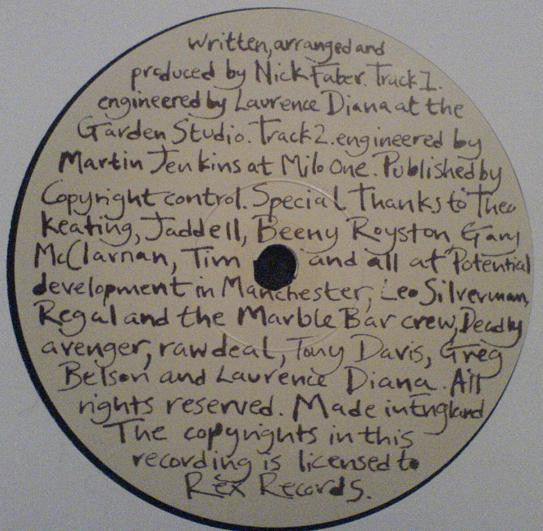 written, arranged and
produced by Nick Faber. Track 1.
engineered by Laurence Diana at the
Garden Studio. Track 2. engineered by
Martin Jenkins at Milo One. Published by
Copyright control. Special Thanks to Theo
Keating, Jaddell, Beeny Royston, Gary
McClarnan, Tim and all at Potential
development in Manchester, Leo Silverman,
Regal and the Marble Bar crew, Deadly
avenger, rawdeal, Tony Davis, Greg
Belson and Laurence Diana. All
rights reserved. Made in England
The copyrights in this
recording is licensed to
Rex Records.